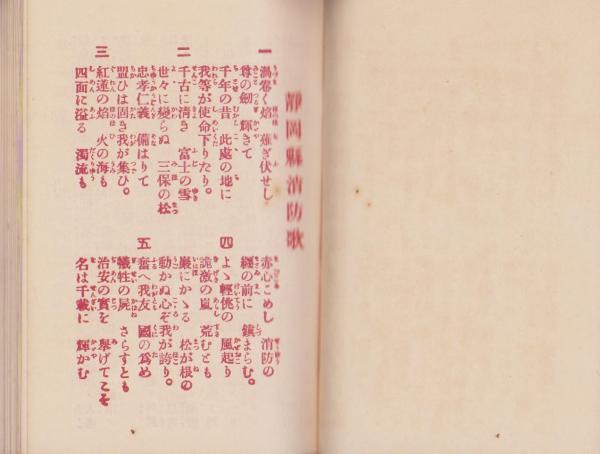 靜岡縣消防歌
一 渦卷く焰薙ぎ伏せし
尊の劍 輝きて
千年の昔 此處の地に
我等が使命下りたり。
二 千古に淸き 富士の雪
世々に變らぬ 三保の松
忠孝仁義 備はりて
盟ひは固き我が集ひ。
三 紅蓮の焰 火の海も
四面に溢る 濁流も
赤心こめし 消防の
纒の前に 鎭まらむ。
四 よゝ輕佻の 風起り
詭激の嵐 荒むとも
巖にかゝる 松が根の
動かぬ心ぞ我が誇り。
五 奮へ我友 國の爲め
犧牲の屍 さらすとも
治安の實を 擧げてこそ
名は千載に 輝かむ